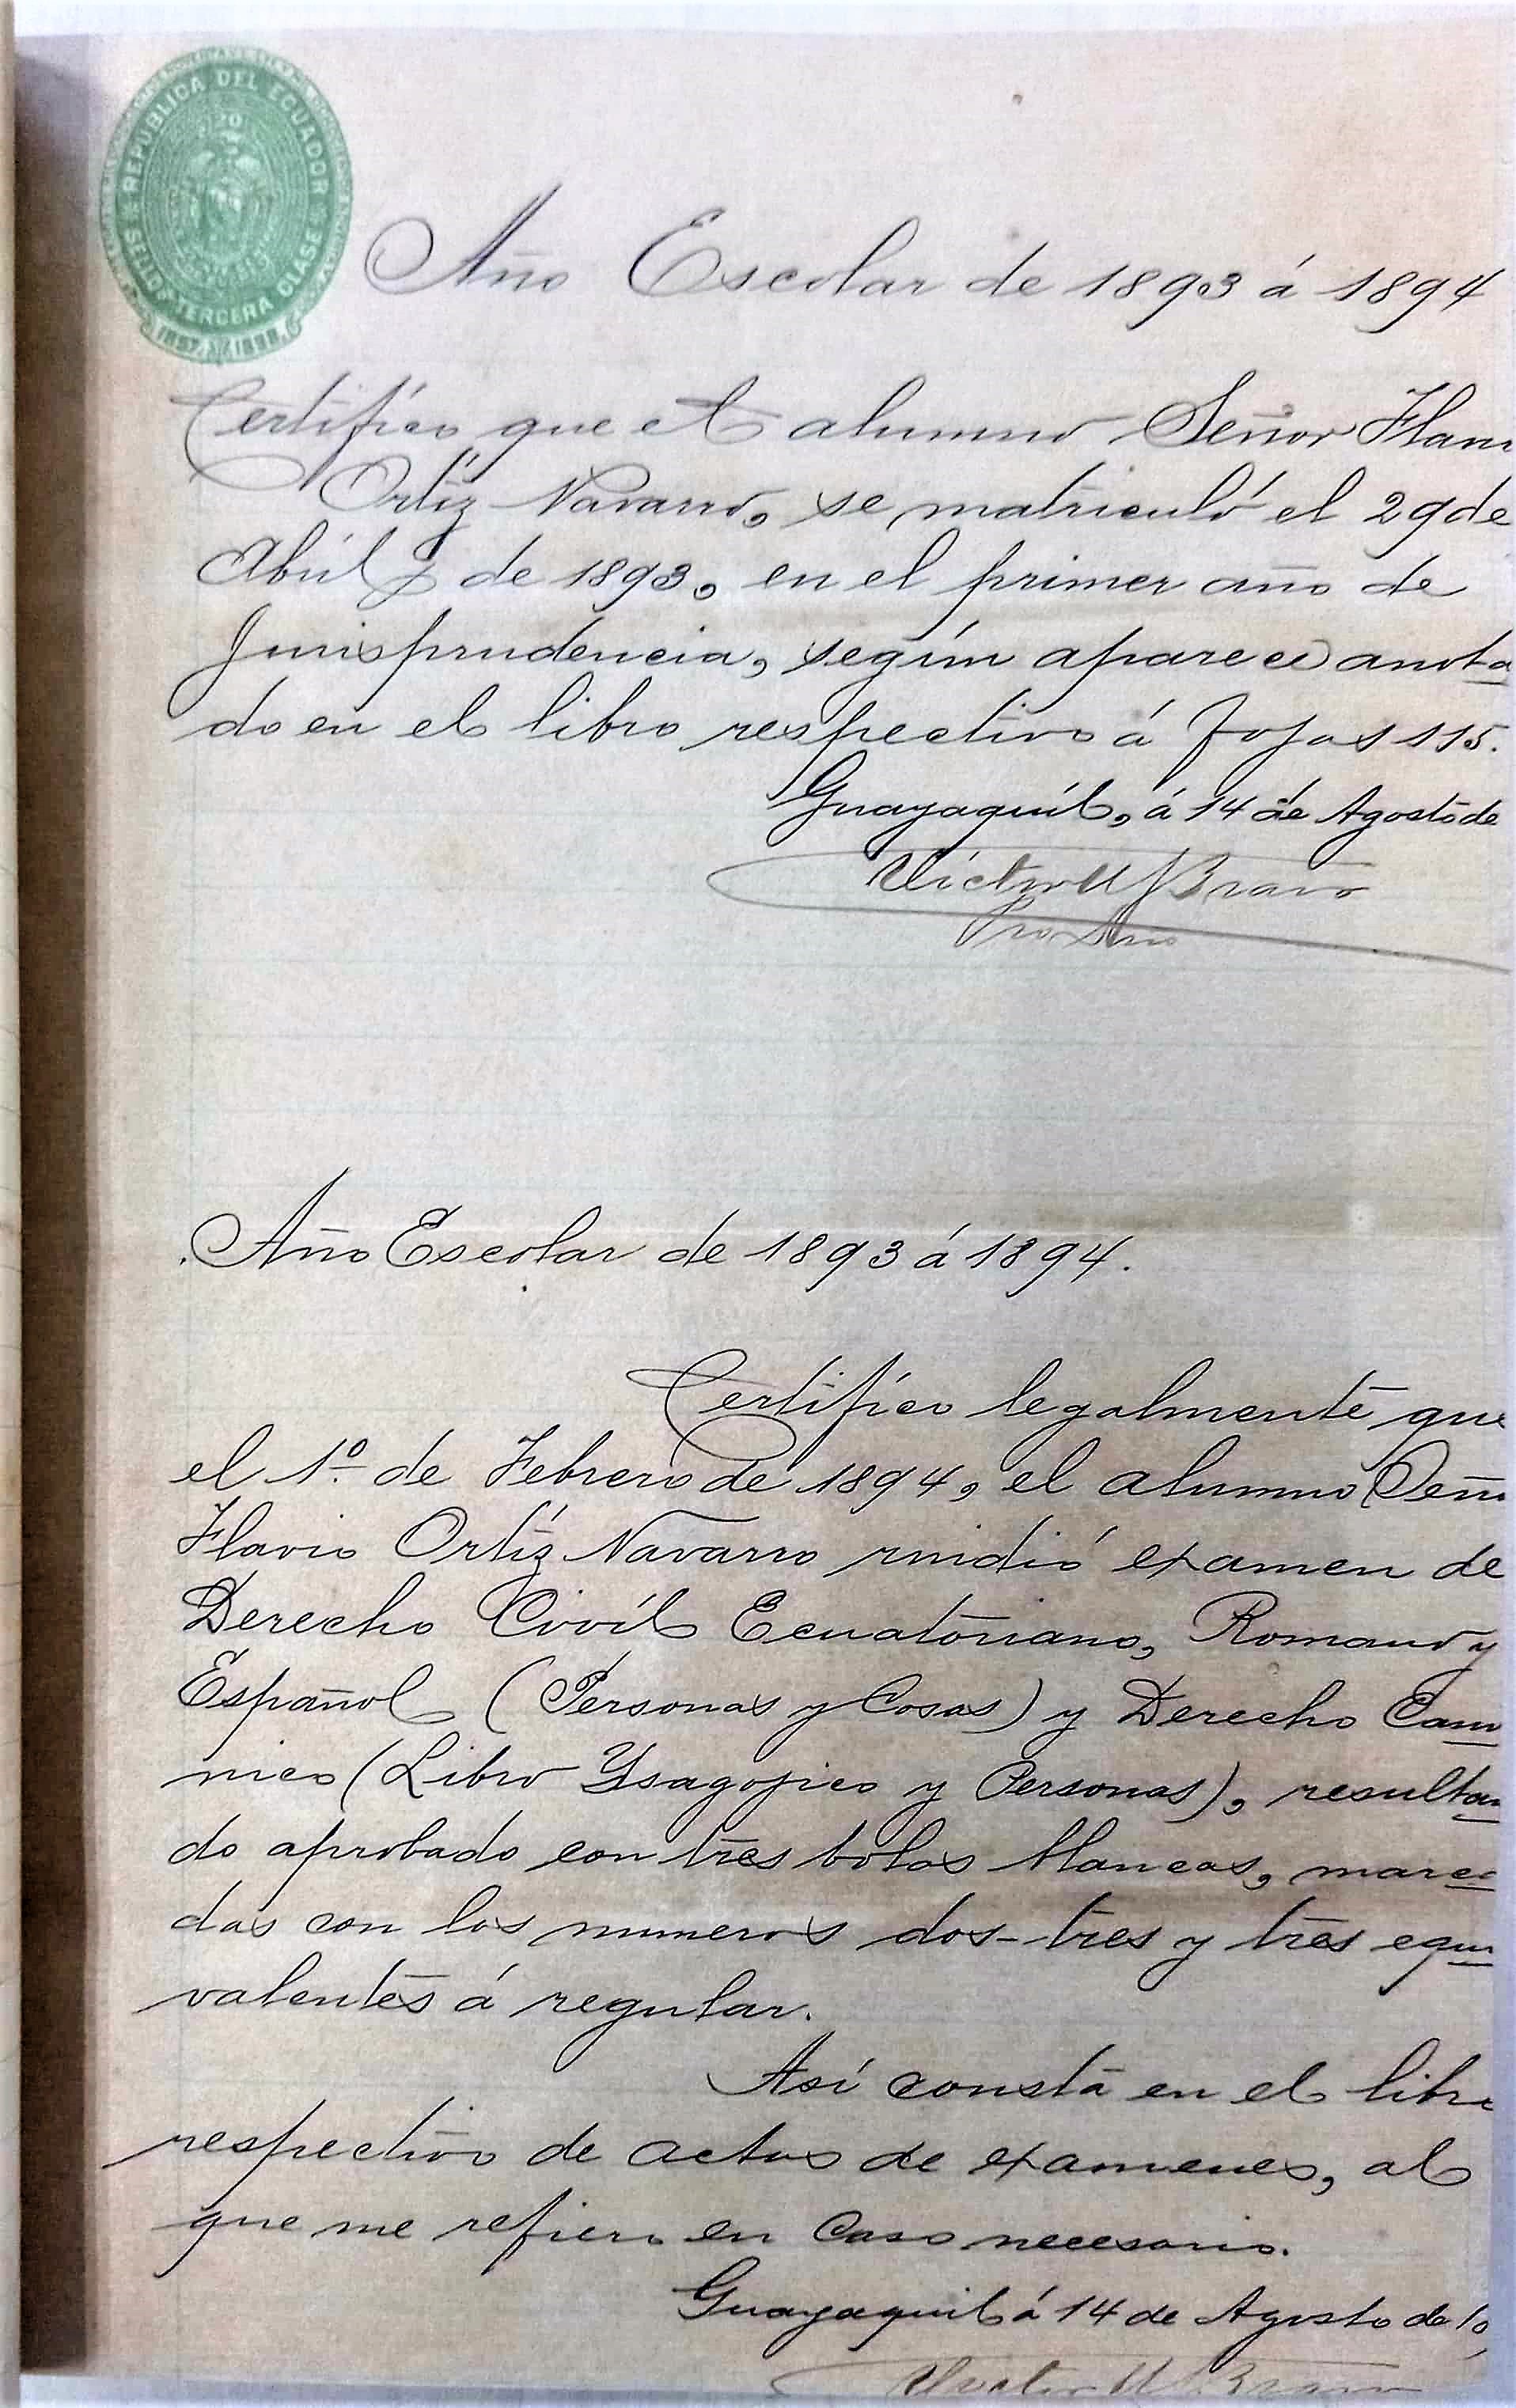 REPUBLICA DEL ECUADOR
SELLO TERCERA CLASE
1897 y 1898
Año Escolar de 1893 á 1894
Certifico que el alumno Señor Flavi
Ortíz Navarro, se matriculó el 29 de
Abril de 1893, en el primer año de
Jurisprudencia, según aparece anota
do en el libro respectivo á fojas 115.
Guayaquil, á 14 de Agosto de
Victor M Bravo
Pro Srio
Año Escolar de 1893 á 1894.
Certifico legalmente que
el 1º de Febrero de 1894, el alumno Seño
Flavio Ortíz Navarro rindió examen de
Derecho Civíl Ecuatoriano, Romano y
Español (Personas y Cosas) y Derecho Can
nico (Libro Ysagojico y Personas), resultan
do aprobado con tres bolas blancas, marca
das con los numeros dos-tres y tres equi
valentes á regular.
Así consta en el libro
respectivo de actas de examenes, al
que me refiero en caso necesario.
Guayaquil á 14 de Agosto de
Victor M. Bravo